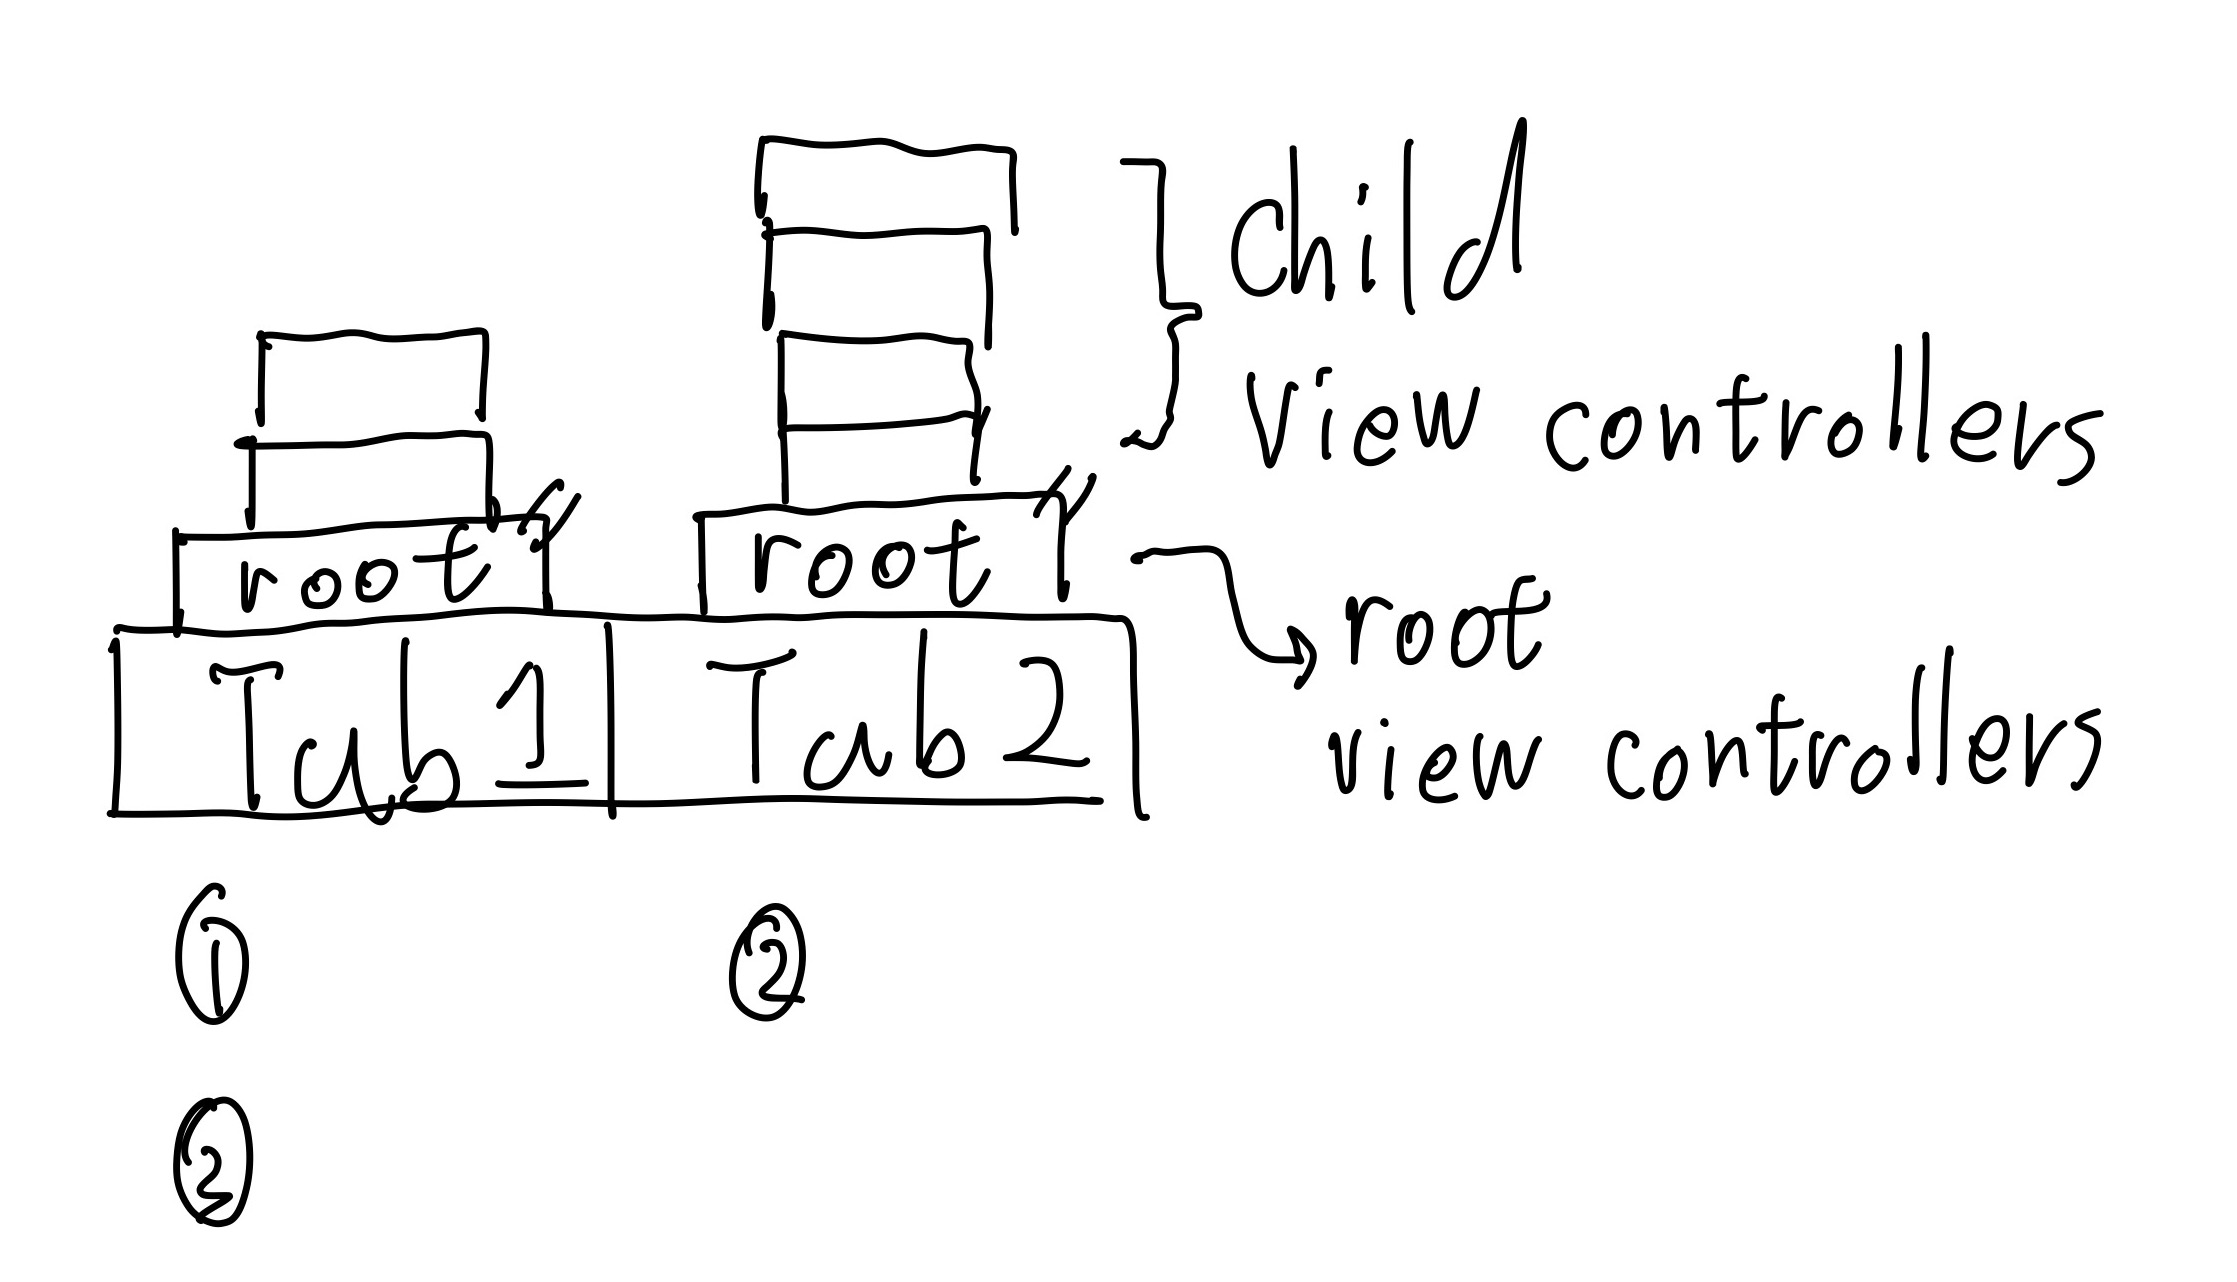 Child
View controllers
root
root
root
view controllers
Tab 1
Tab 2
①
②
②